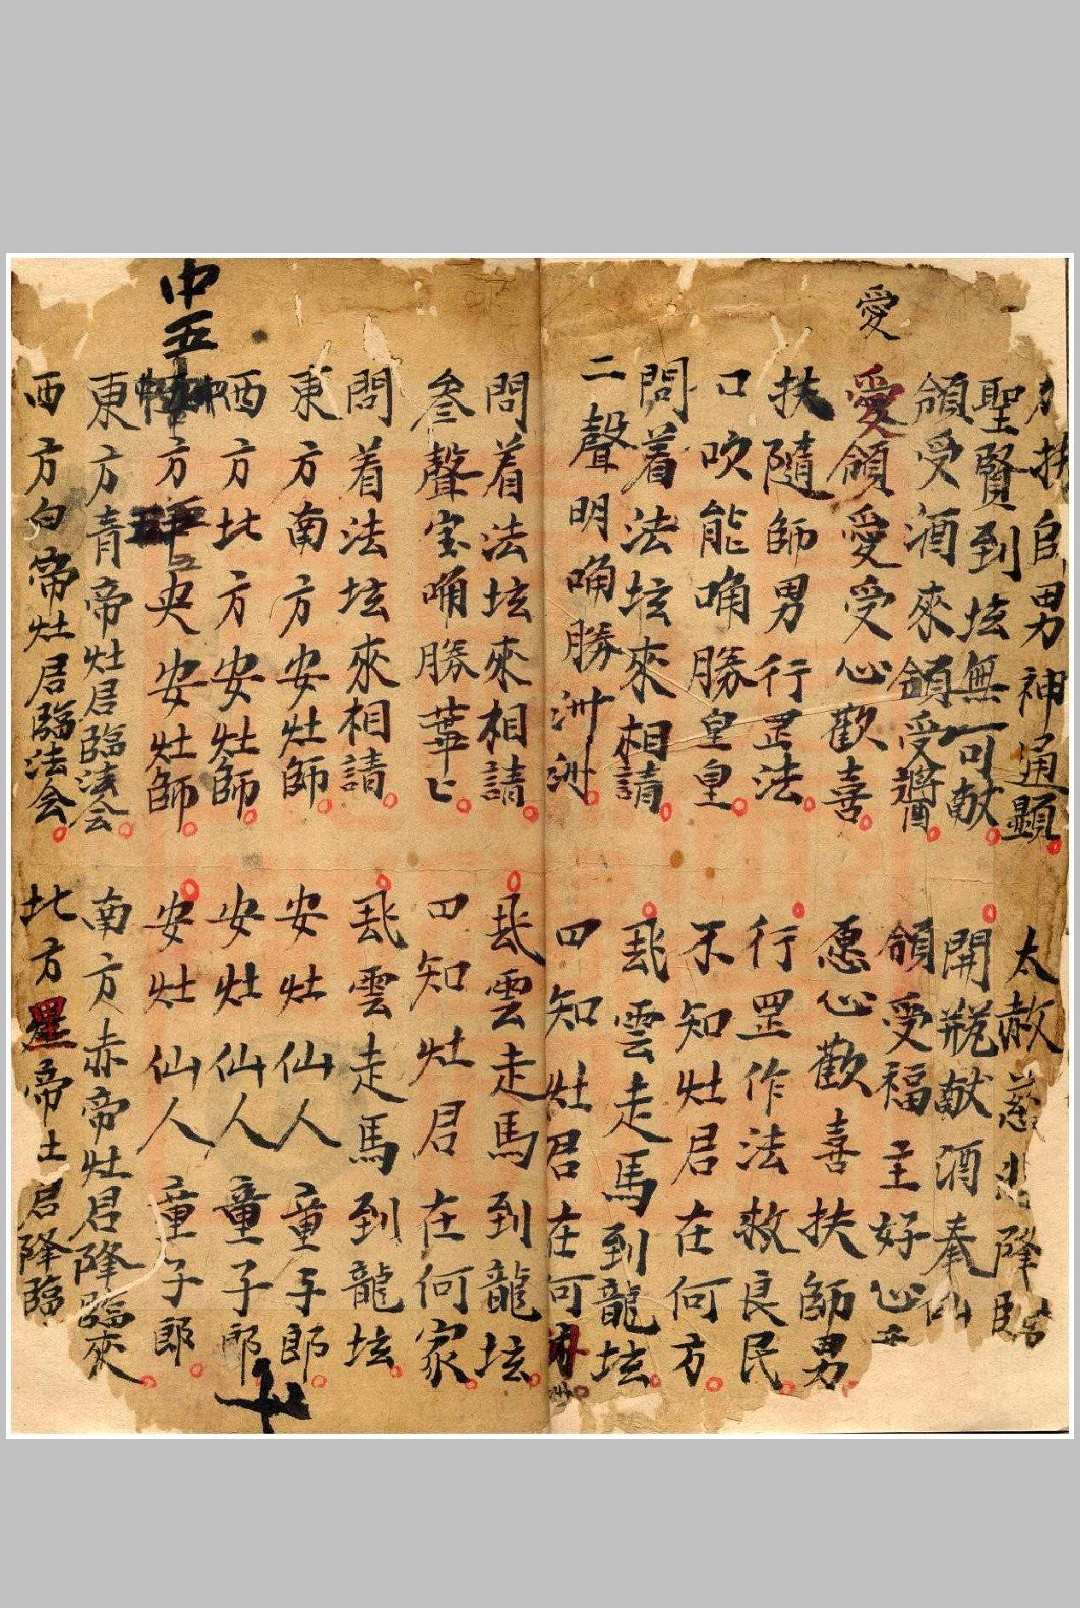 愛
扶師男神通顯。太赦慈悲降臨
聖賢到坛無可献。開瓶献酒奉仙
領受酒來領受醬。領受福主好心
愛領愛受心歡喜。愿心歡喜扶師男
扶隨師男行罡法。行罡作法救良民
口吹能唃勝皇皇。不知灶君在何方。
問着法坛來相請。飛雲走馬到龍坛
二聲明唃勝洲洲。四知灶君在可
問着法坛來相請。飛雲走馬到龍坛。
叁聲宝唃勝葦匕。四知灶君在何家。
問着法坛來相請。飛雲走馬到龍坛。
東方南方安灶師。安灶仙人童子郎。
西方北方安灶師。安灶仙人童子郎
中五方五央安灶師。安灶仙人童子郎。
東方青帝灶君臨法会。南方赤帝灶君降臨來。
西方白帝灶君臨法会。北方黑帝土君降臨